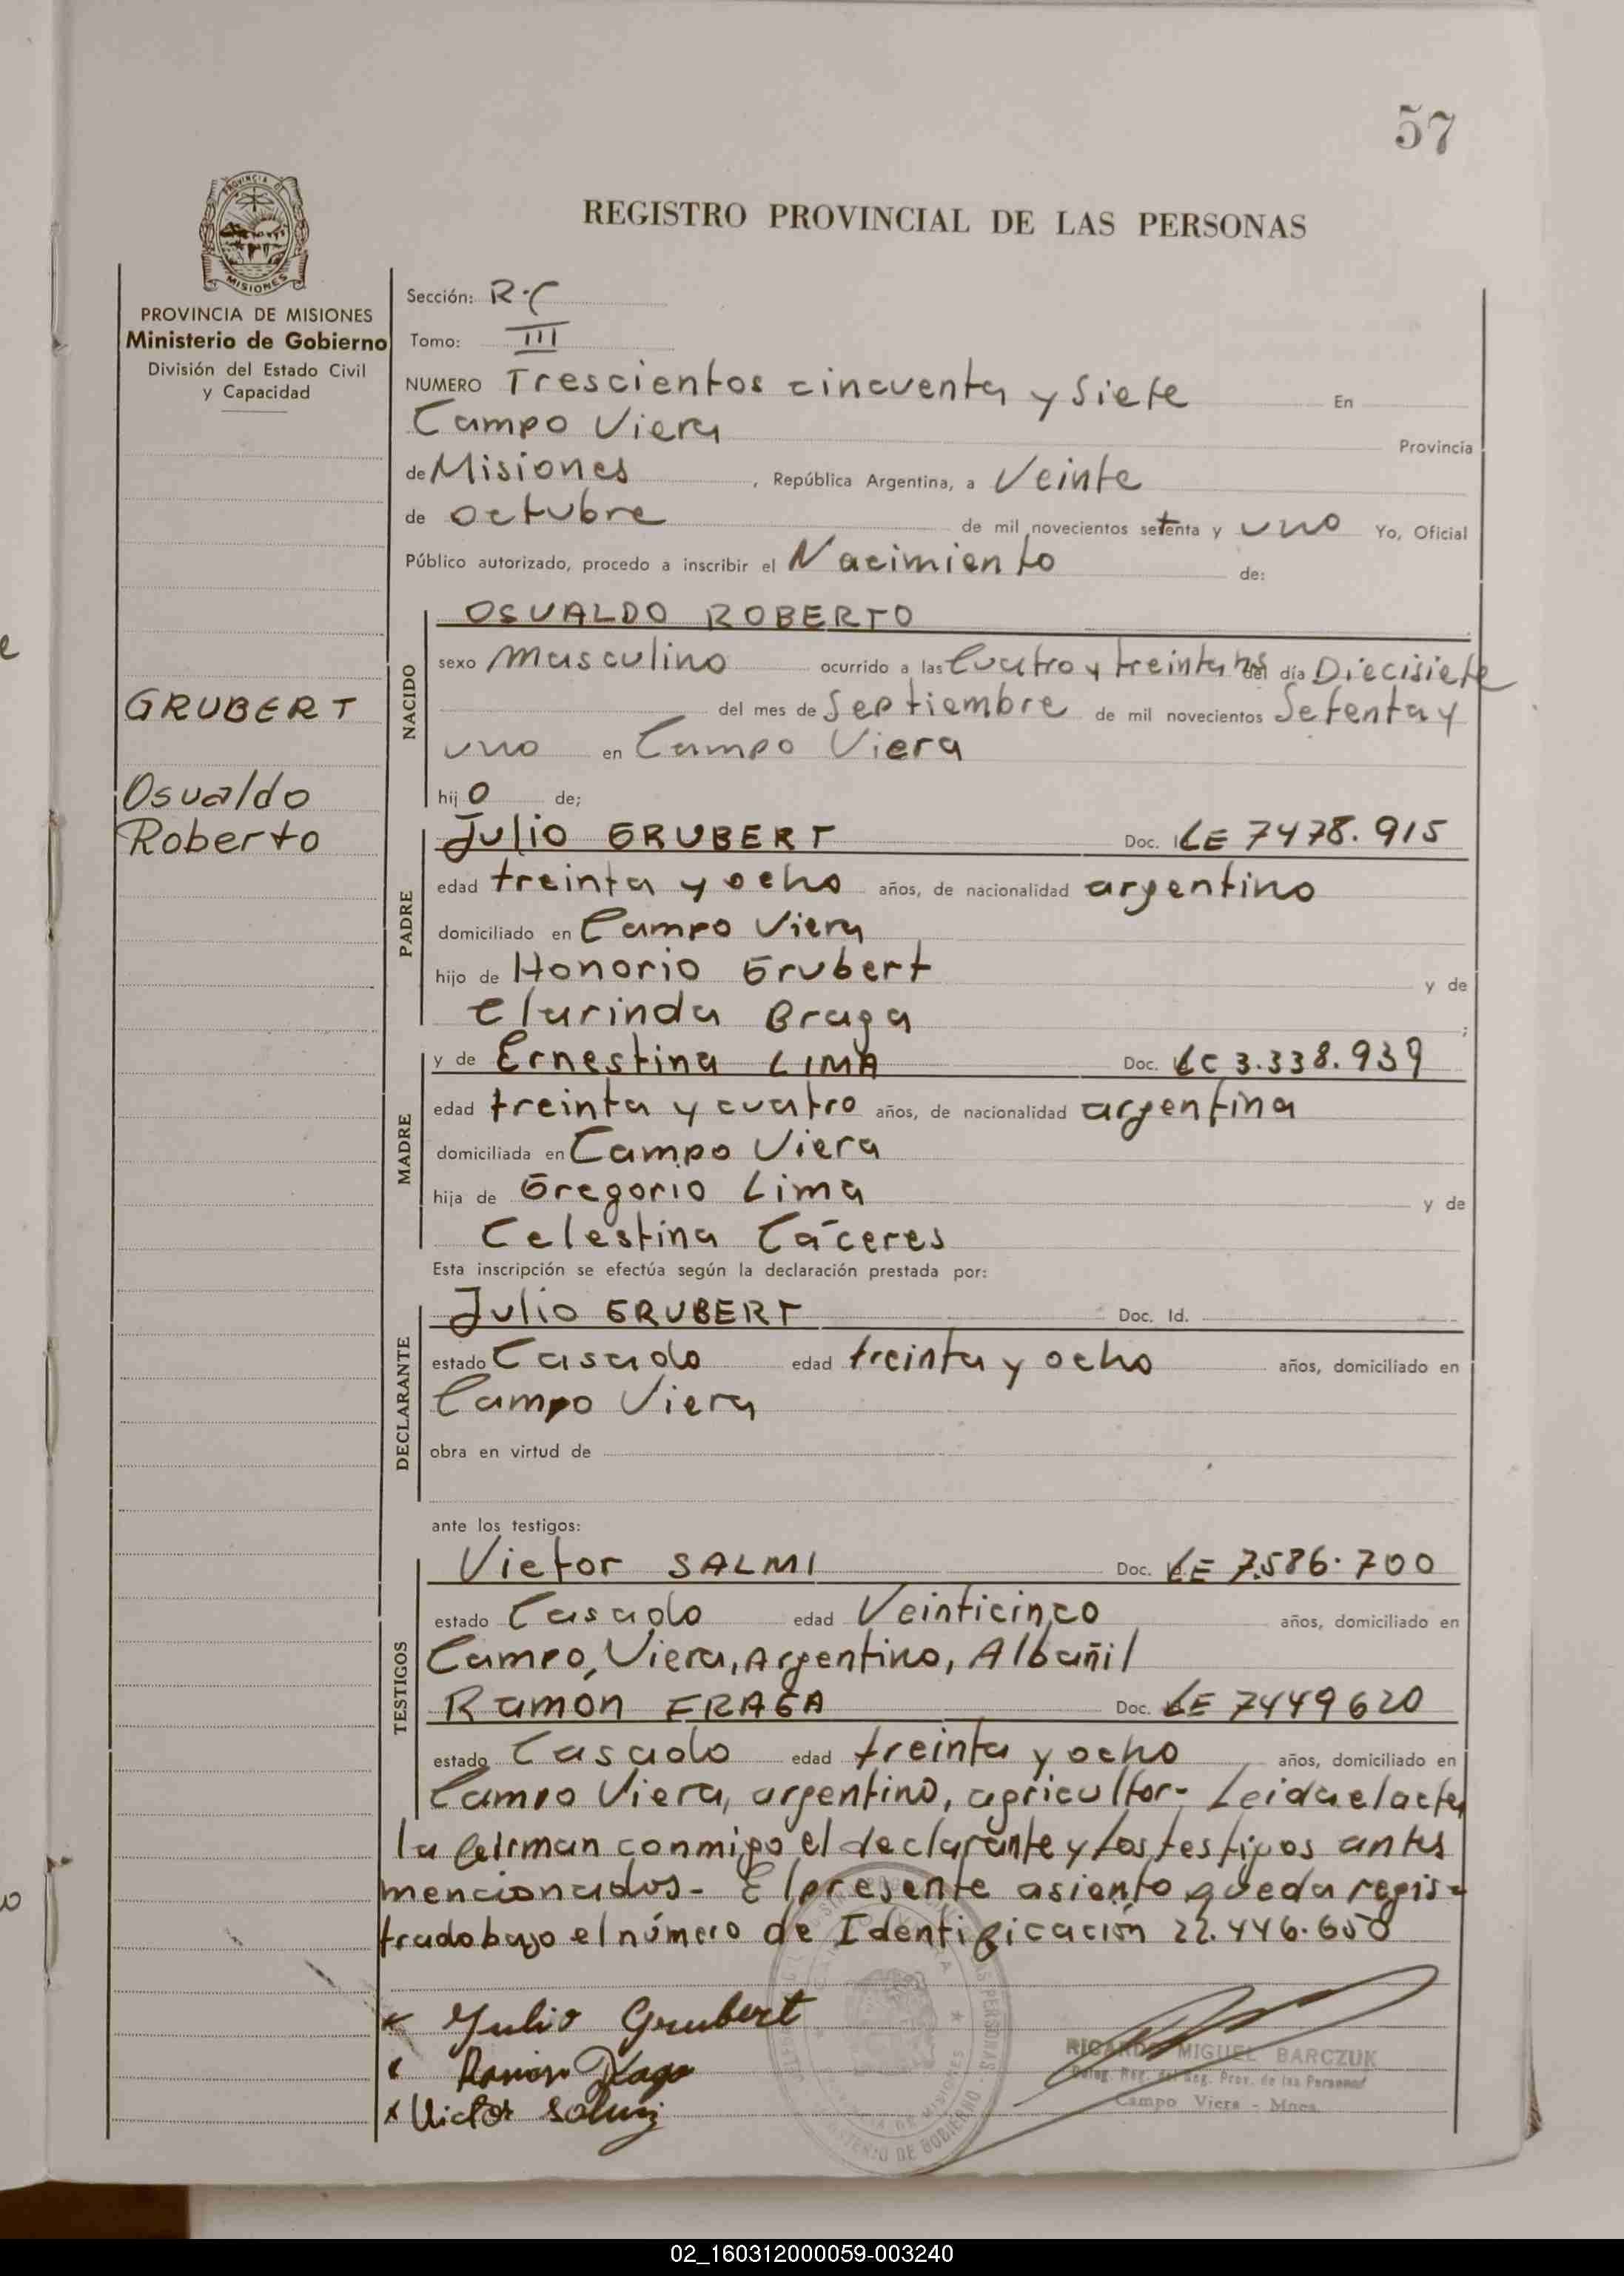 57
REGISTRO PROVINCIAL DE LAS PERSONAS
PROVINCIA DE
MISIONES
PROVINCIA DE MISIONES
Ministerio de Gobierno
División del Estado Civil
y Capacidad
GRUBERT
Osvaldo
Roberto
Sección: R.C
Tomo: III
NUMERO Trescientos cincuenta y Siete En
Campo Viera Provincia
de Misiones, República Argentina, a Veinte
de octubre de mil novecientos setenta y uno Yo, Oficial
Público autorizado, procedo a inscribir el Nacimiento de:
NACIDO
OSVALDO ROBERTO
sexo masculino ocurrido a las Cuatro y treinta hs del día Diecisiete
del mes de Septiembre de mil novecientos Setenta y
uno en Campo Viera
hijo de;
PADRE
Julio GRUBERT Doc. LE 7478.915
edad treinta y ocho años, de nacionalidad argentino
domiciliado en Campo Viera
hijo de Honorio Grubert y de
Clarinda Braga ;
MADRE
y de Ernestina LIMA Doc. LC 3.338.939
edad treinta y cuatro años, de nacionalidad argentina
domiciliada en Campo Viera
hija de Gregorio Lima y de
Celestina Cáceres
Esta inscripción se efectúa según la declaración prestada por:
DECLARANTE
Julio GRUBERT Doc. Id.
estado Casado edad treinta y ocho años, domiciliado en
Campo Viera
obra en virtud de
ante los testigos:
TESTIGOS
Victor SALMI Doc. LE 7.586.700
estado Casado edad Veinticinco años, domiciliado en
Campo Viera, Argentino, Albañil
Ramón FRAGA Doc. LE 7449620
estado Casado edad treinta y ocho años, domiciliado en
Campo Viera, argentino, agricultor- Leida el acta
la firman conmigo el declarante y los testigos antes
mencionados- El presente asiento queda regis-
trado bajo el número de Identificación 22.446.650
x Julio Grubert
x Ramon
x Victor
RICARDO MIGUEL BARCZUK
Deleg. Reg. del Reg. Prov. de las Personas
Campo Viera - Mnes.
MINISTERIO DE GOBIERNO
02_160312000059-003240